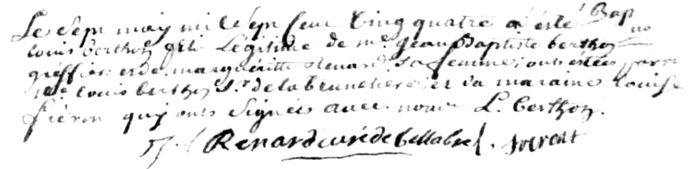 Le sept may mil sept sent vingt quatre a esté Bap
louis berthon fils Légitime de me Jean Baptiste berthon
greffier et de margueritte Renard sa femme, onts estes parr
louis berthon sr de la brunetiere et sa maraine louise
qui onts signés avec nous L. berthon
Renard curé de bellabre